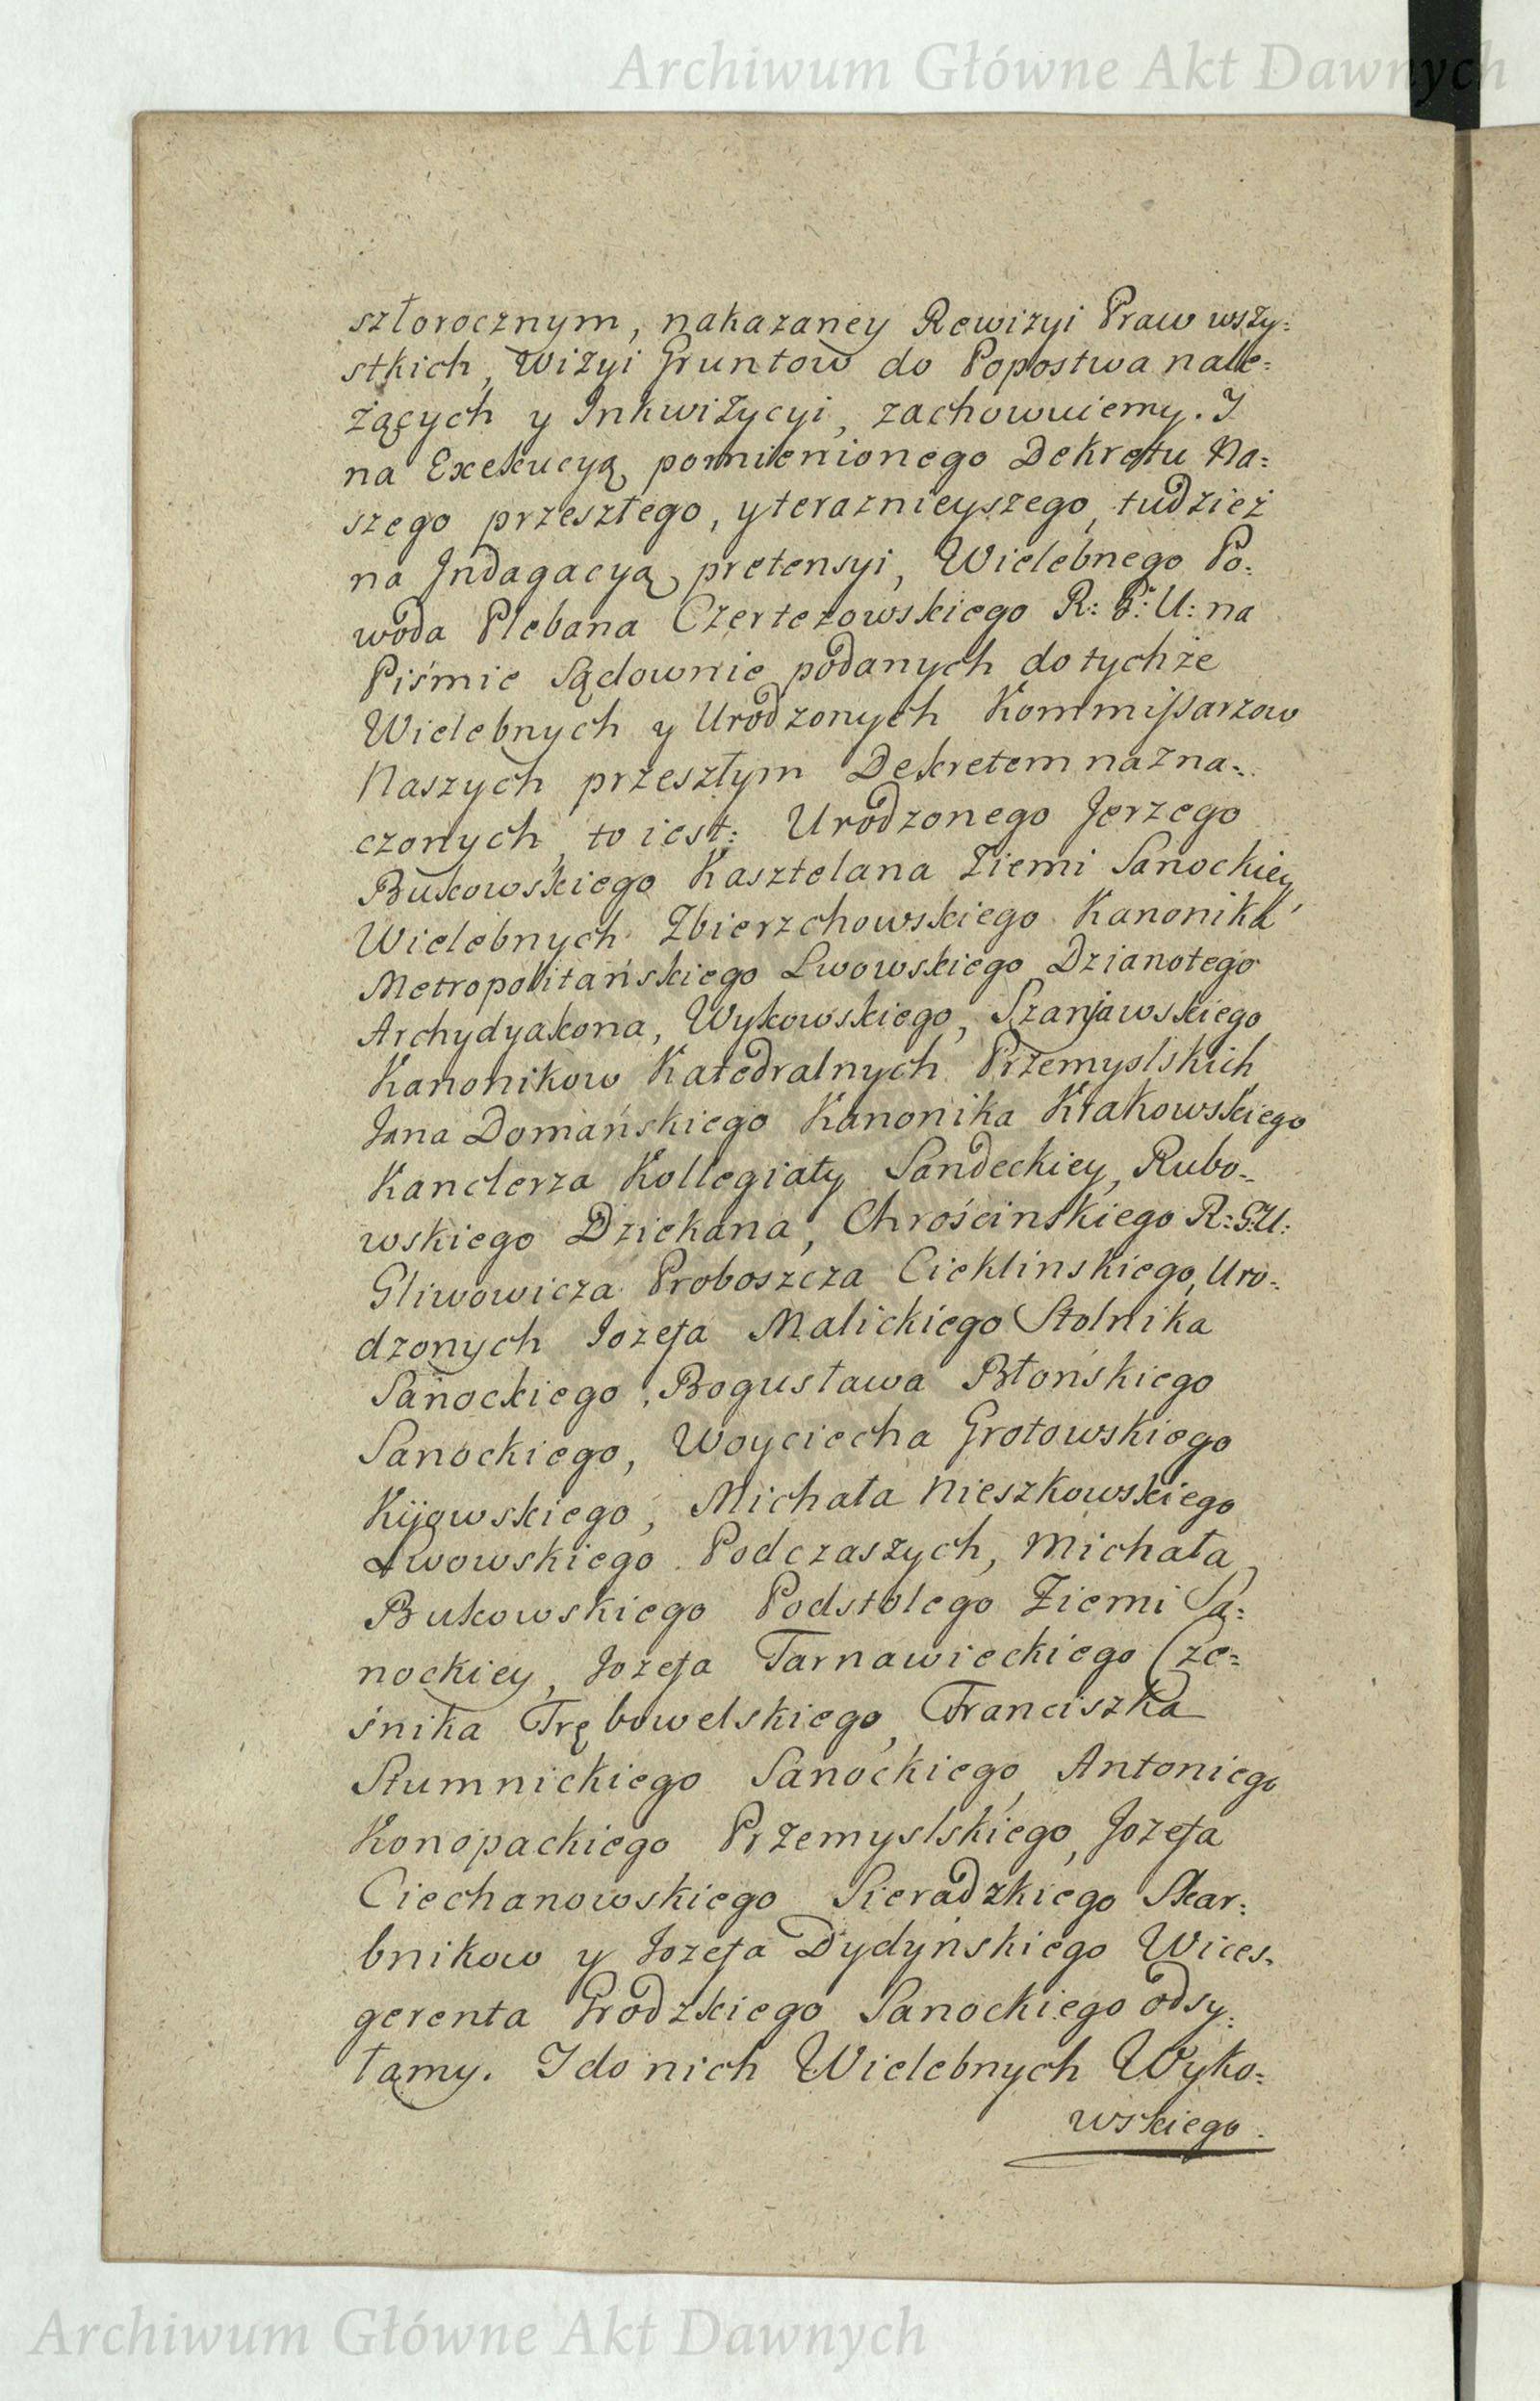 Archiwum Główne Akt Dawnych
szłorocznym, nakazaney Rewizyi Praw wszy=
stkich, Wizyi Gruntow do Popostwa nale=
żących y Inkwizycyi, zachowuiemy. I
na Exekucyą pomienionego Dekretu Na=
szego przeszłego, y teraznieyszego, tudzież
na Indagacyą pretensyi, Wielebnego Po=
woda Plebana Czertezowskiego R: G: U: na
Piśmie Sądownie podanych do tychże
Wielebnych y Urodzonych Kommissarzow
Naszych przeszłym Dekretem nazna=
czonych, to iest: Urodzonego Jerzego
Bukowskiego Kasztelana Ziemi Sanockiey,
Wielebnych Zbierzchowskiego Kanonika
Metropolitańskiego Lwowskiego Dzianotego
Archydyakona, Wykowskiego, Szaniawskiego
Kanonikow Katedralnych Przemyslskich
Jana Domańskiego Kanonika Krakowskiego
Kanclerza Kollegiaty Sandeckiey, Rubo=
wskiego Dziekana, Chrościnskiego R: G: U:
Gliwowicza Proboszcza Cieklinskiego, Uro=
dzonych Jozefa Malickiego Stolnika
Sanockiego, Bogusława Błońskiego
Sanockiego, Woyciecha Grotowskiego
Kijowskiego, Michała Nieszkowskiego
Lwowskiego Podczaszych, Michała
Bukowskiego Podstolego Ziemi Sa=
nockiey, Jozefa Tarnawieckiego Cze=
śnika Trębowelskiego, Franciszka
Słumnickiego Sanockiego, Antoniego
Konopackiego Przemyslskiego, Jozefa
Ciechanowskiego Sieradzkiego Skar=
bnikow y Jozefa Dydyńskiego Wices=
gerenta Grodzkiego Sanockiego odsy=
łamy. I do nich Wielebnych Wyko=
wskiego.
Archiwum Główne Akt Dawnych